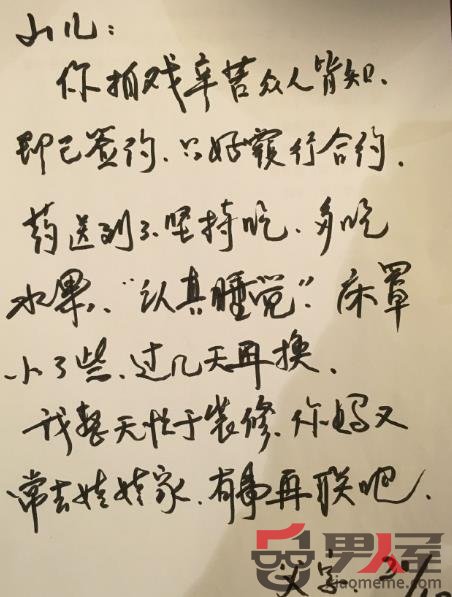 山儿:
你拍戏辛苦众人皆知.
即已签约、只好履行合约.
药送到了坚持吃、多吃
水果、“认真睡觉”.床罩
小了些、过几天再换.
我整天忙于装修、你妈又
常去娃娃家、有事再联吧.
父字.
男人屋
xiaomeme.com